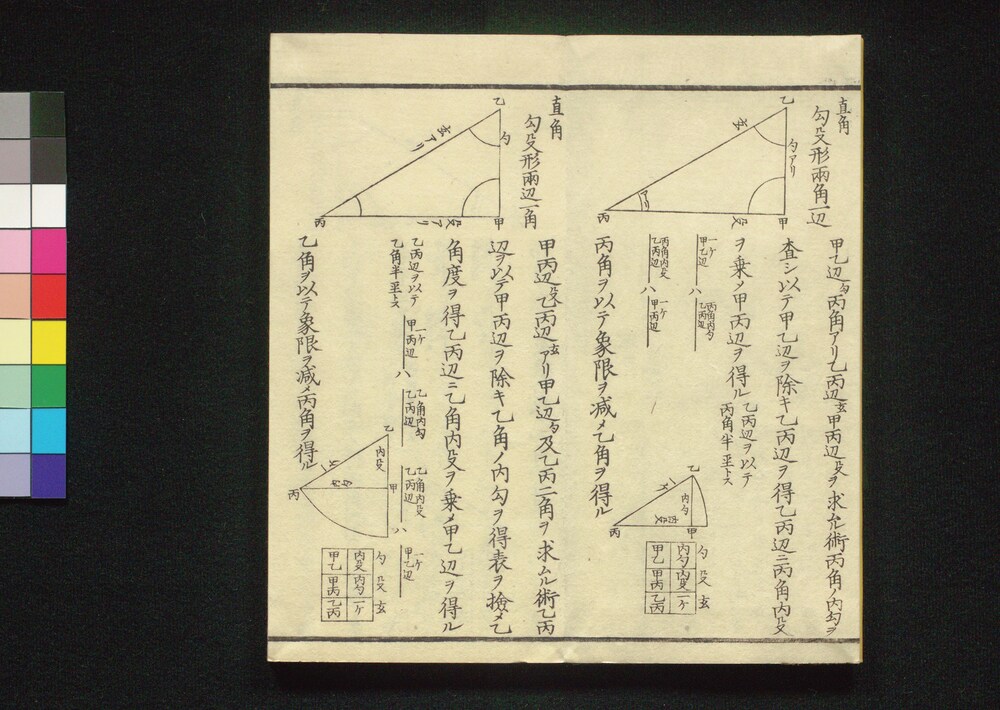 直角
勾殳形兩角一辺
乙
勾アリ
玄
アリ
丙
殳
甲
甲乙辺勾丙角アリ乙丙辺玄甲丙辺殳ヲ求ムル術丙角ノ内勾ヲ
査シ以テ甲乙辺ヲ除キ乙丙辺ヲ得乙丙辺ニ丙角内殳
ヲ乗メ甲丙辺ヲ得ル
乙丙辺ヲ以テ
丙角半径トス
一ケ
甲乙辺
ハ
丙角内勾
乙丙辺
丙角内殳
乙丙辺
ハ
一ケ
甲丙辺
丙角ヲ以テ象限ヲ減メ乙角ヲ得ル
乙
一ケ
内勾
内殳
丙
甲
勾 殳 玄
内勾 内殳 一ケ
甲乙 甲丙 乙丙
直角
勾殳形兩辺一角
乙
勾
玄アリ
丙
殳アリ
甲
甲丙辺殳乙丙辺玄アリ甲乙辺勾及乙丙二角ヲ求ムル術乙丙
辺ヲ以テ甲丙辺ヲ除キ乙角ノ内勾ヲ得表ヲ撿メ乙
角度ヲ得乙丙辺ニ乙角内殳ヲ乗メ甲乙辺ヲ得ル
乙丙辺ヲ以テ
乙角半径トス
一ケ
甲丙辺
ハ
乙角内勾
乙丙辺
乙角内殳
乙丙辺
ハ
一ケ
甲乙辺
乙角ヲ以テ象限ヲ減メ丙角ヲ得ル
乙
内殳
一ケ
内勾
丙
甲
勾 殳 玄
内殳 内勾 一ケ
甲乙 甲丙 乙丙